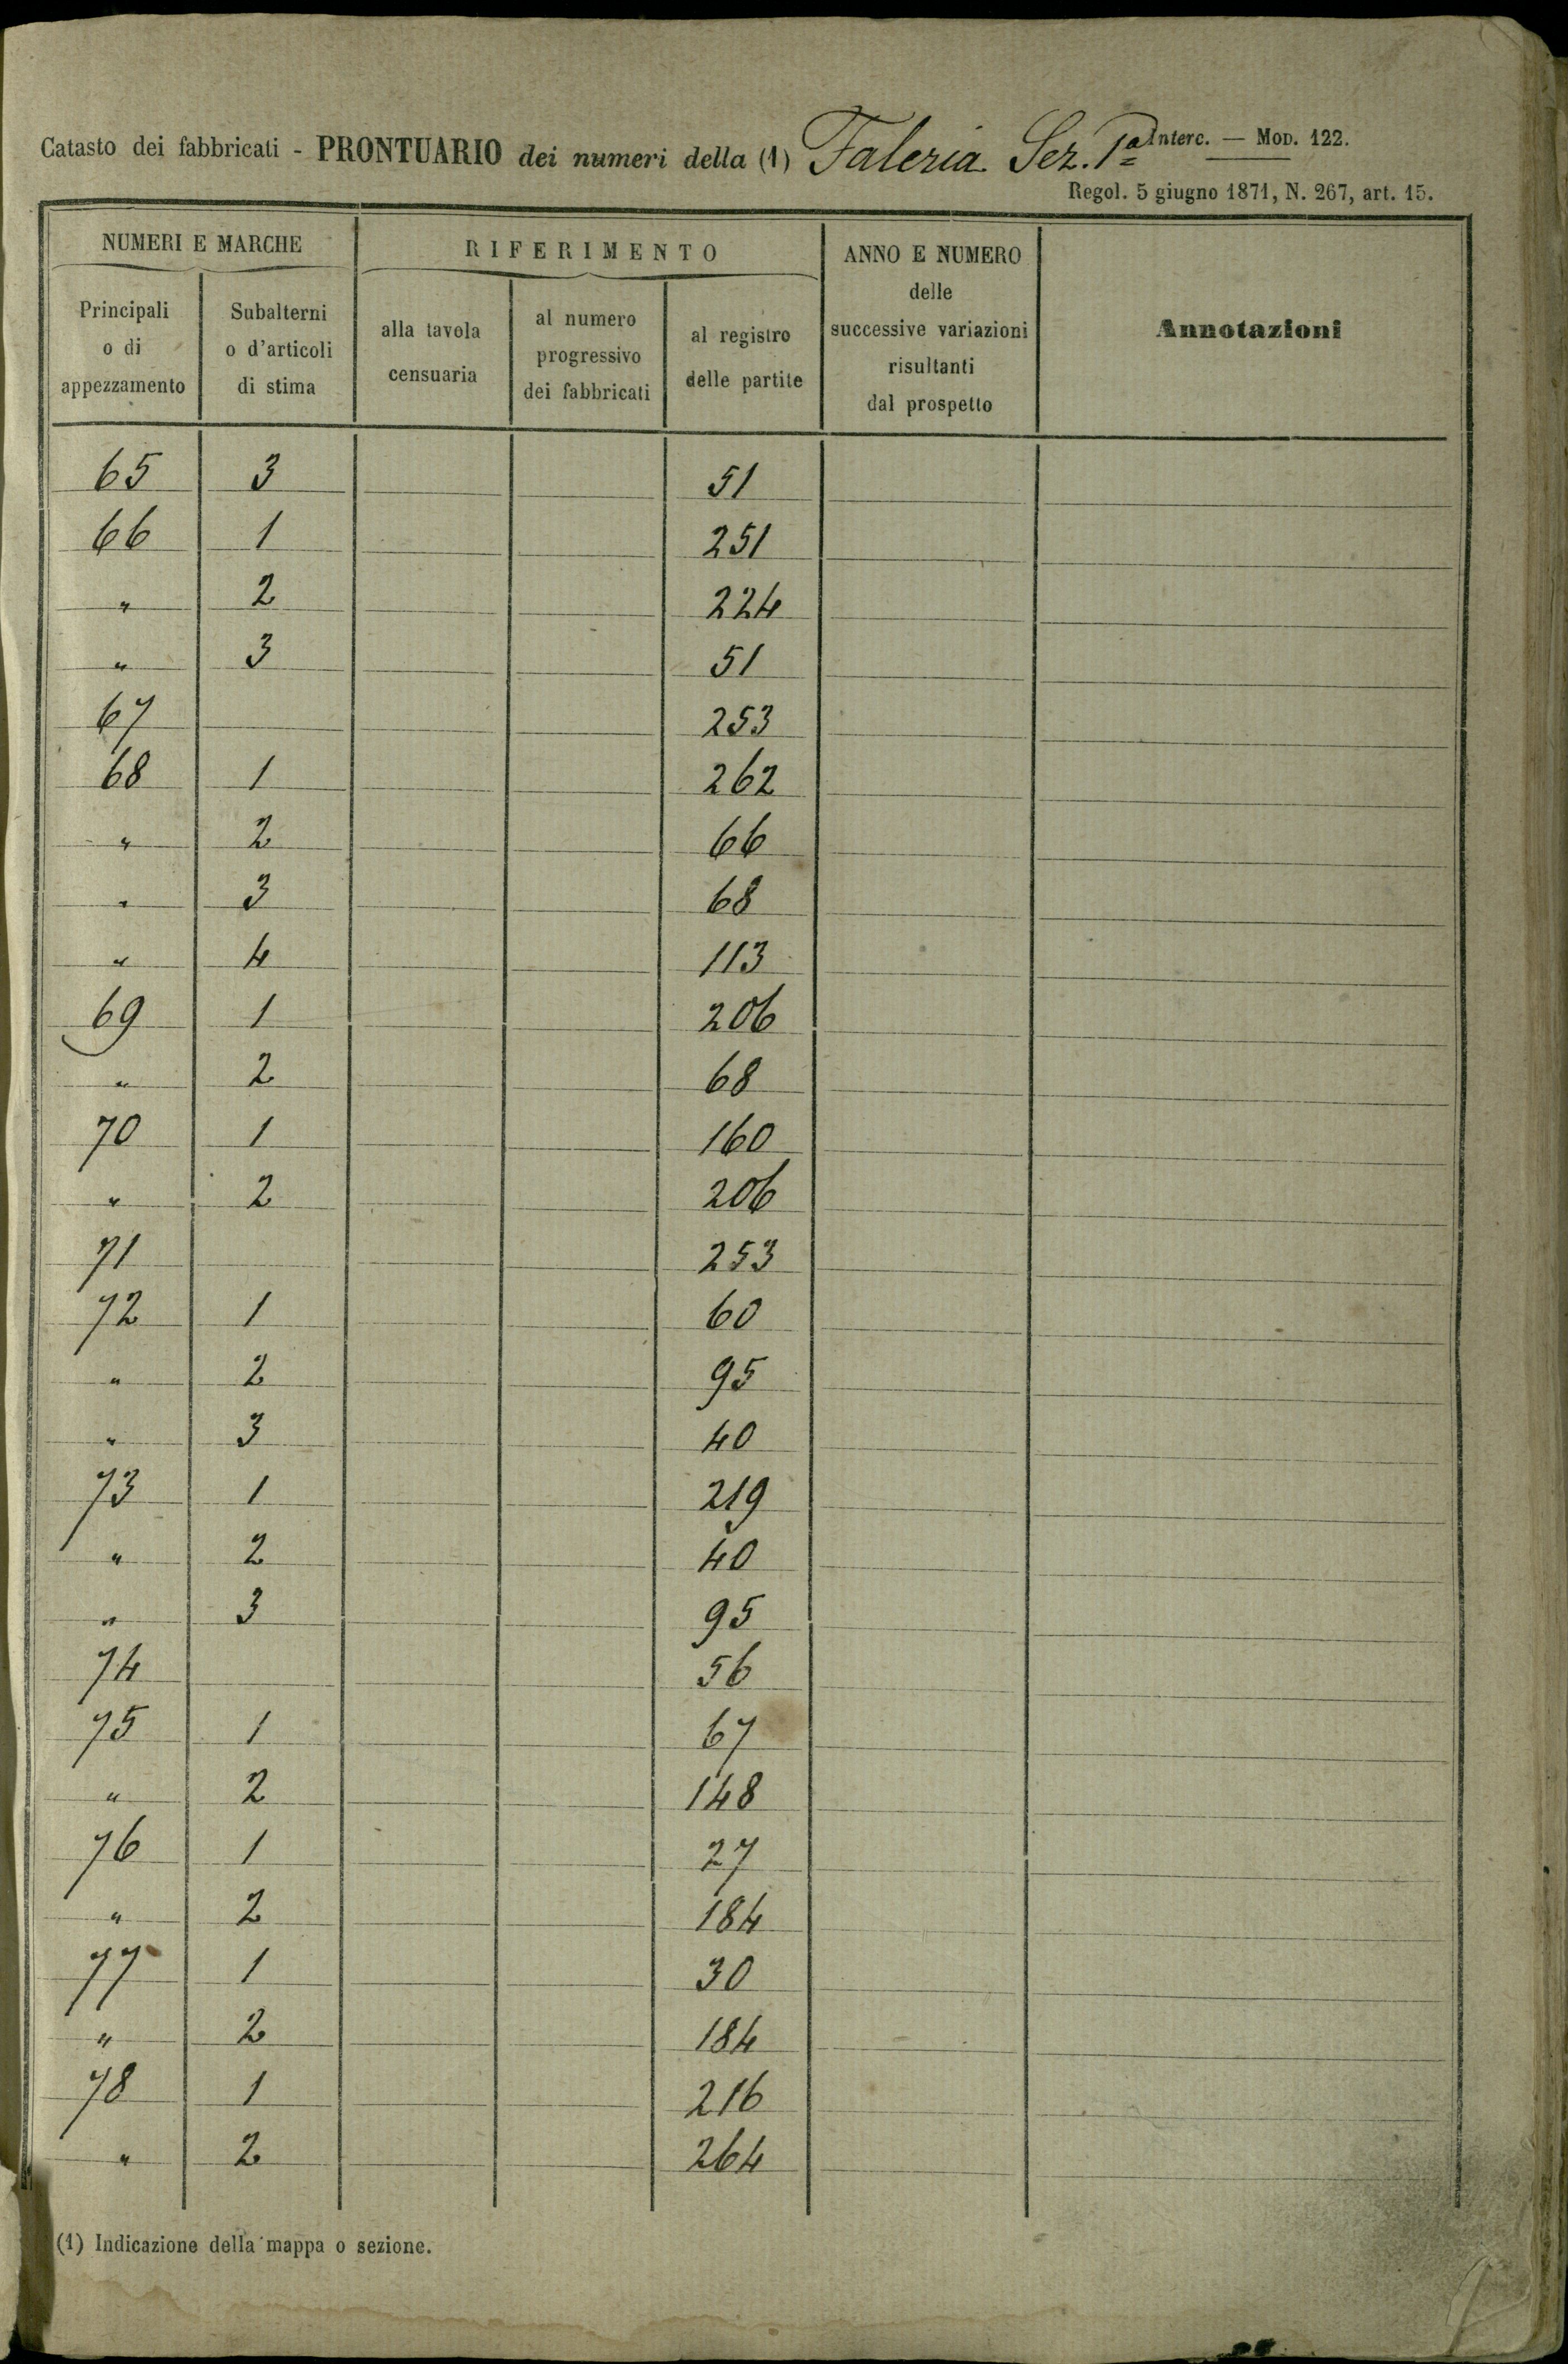 Catasto dei fabbricati - PRONTUARIO dei numeri della (1) Faleria Sez. 1ª Interc. — Mod. 122.
Regol. 5 giugno 1871, N. 267, art. 15.
NUMERI E MARCHE RIFERIMENTO ANNO E NUMERO delle successive variazioni risultanti dal prospetto Annotazioni
Principali o di appezzamento Subalterni o d'articoli di stima alla tavola censuaria al numero progressivo dei fabbricati al registro delle partite
65 3 51
66 1 251
" 2 224
" 3 51
67 253
68 1 262
" 2 66
" 3 68
" 4 113
69 1 206
" 2 68
70 1 160
" 2 206
71 253
72 1 60
" 2 95
" 3 40
73 1 219
" 2 40
" 3 95
74 56
75 1 67
" 2 148
76 1 27
" 2 184
77 1 30
" 2 184
78 1 216
" 2 264
(1) Indicazione della mappa o sezione.